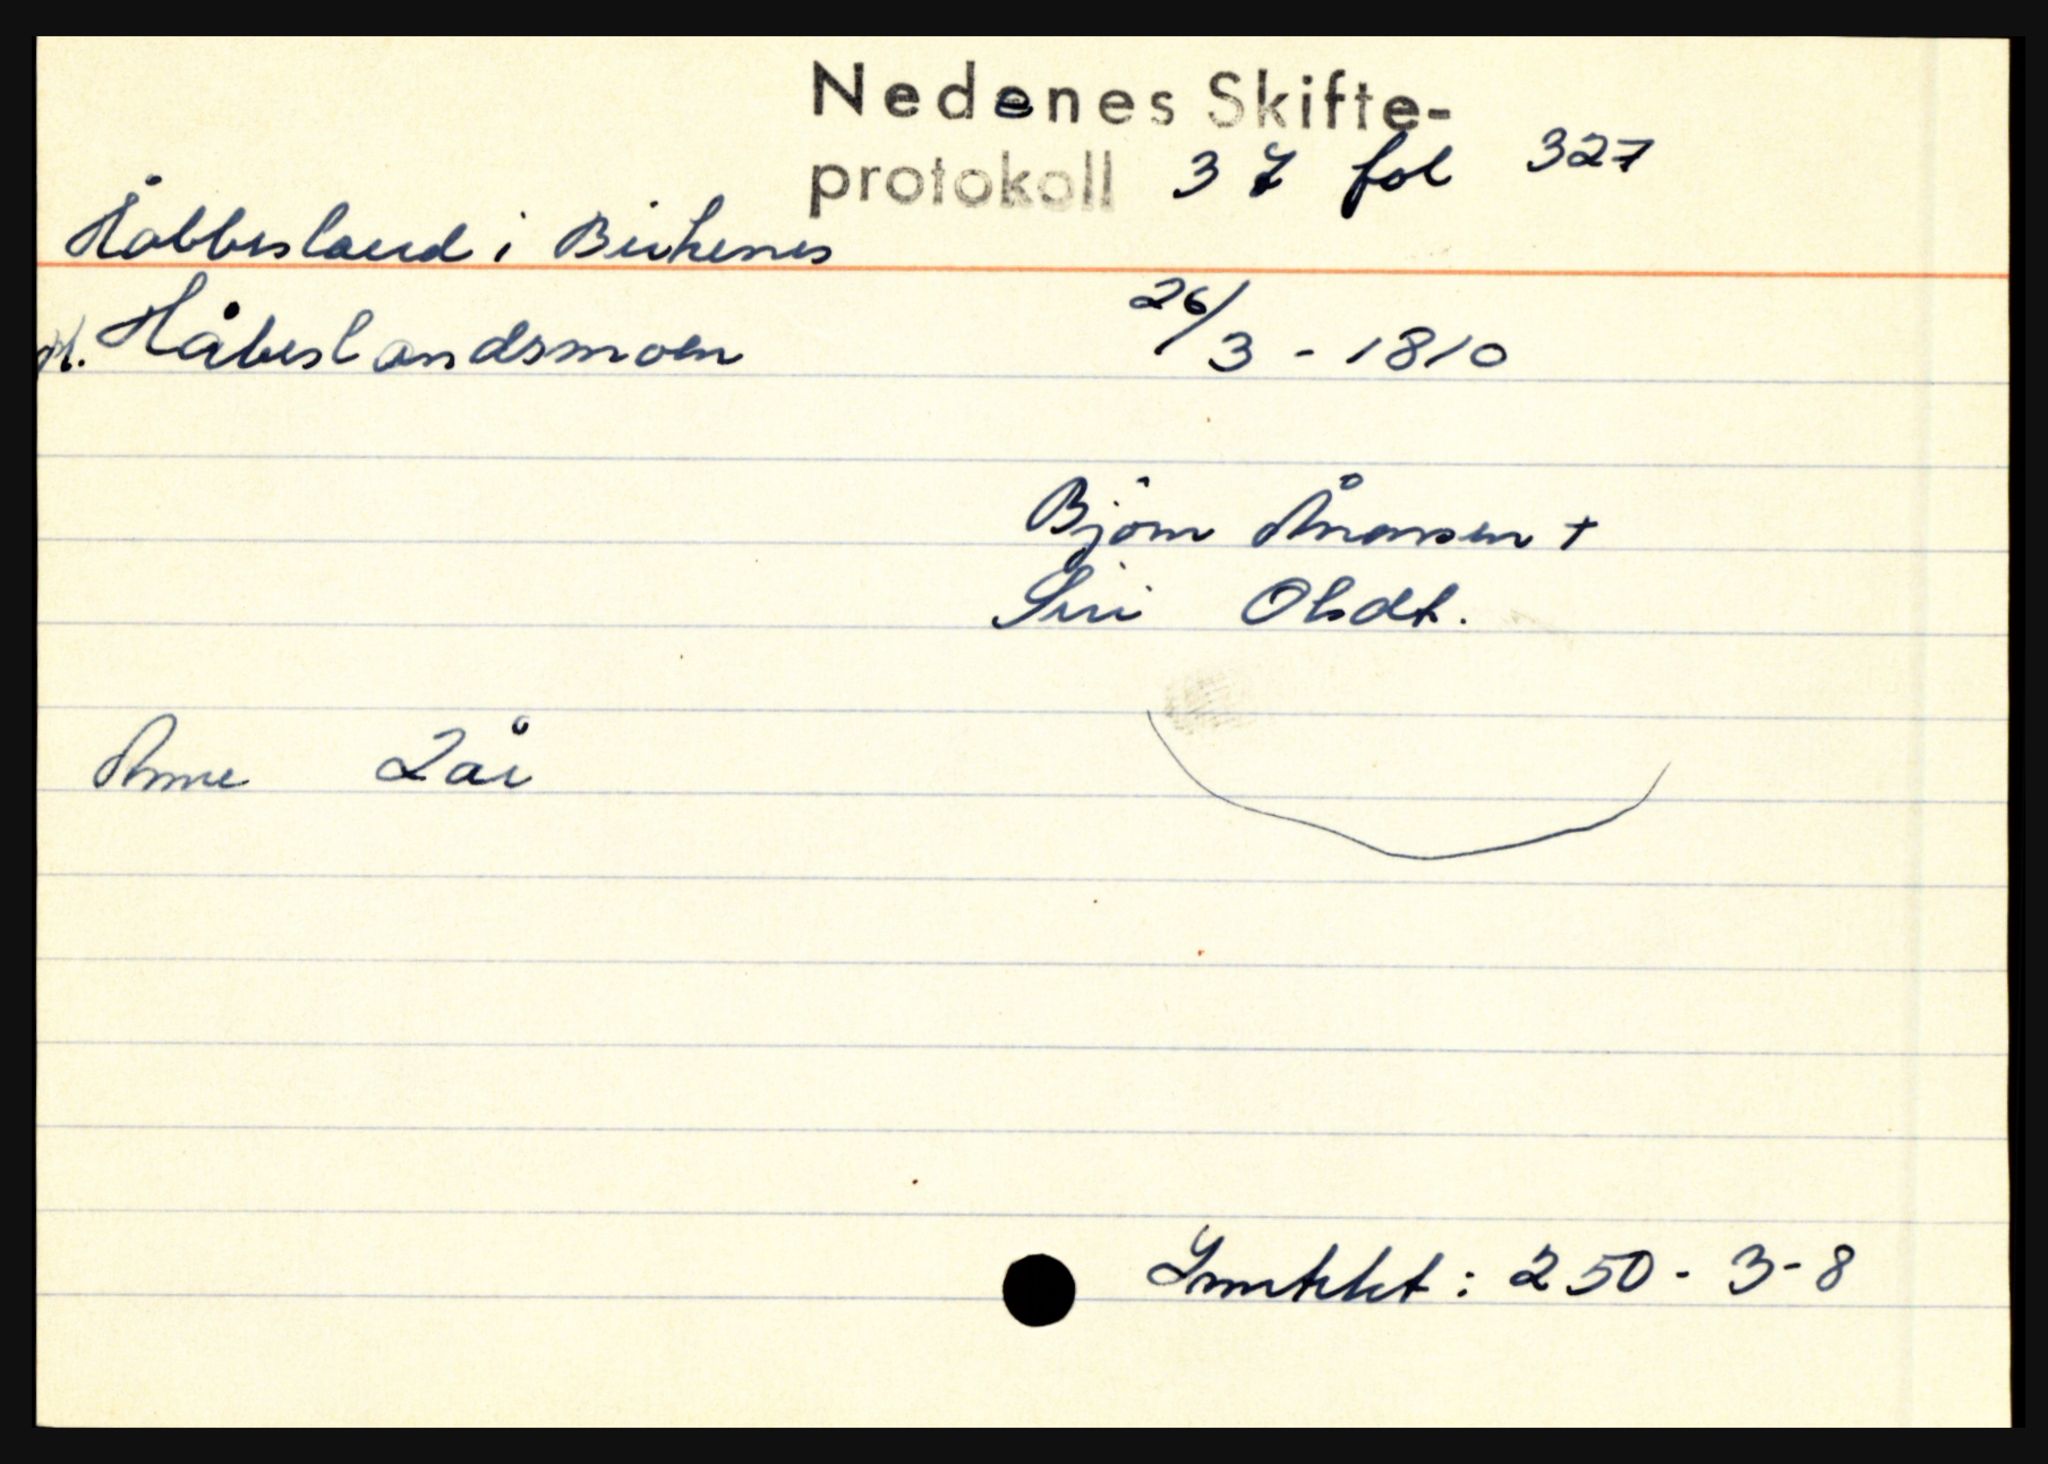 Nedenes Skifte-
protokoll 37 fol 327
Håbbesland i Birkenes
pl. Håbeslandsmoen 26/3 - 1810
Björn Ånonsen +
Siri Olsdt.
Anne 2 år
Inntekt: 250 - 3 - 8